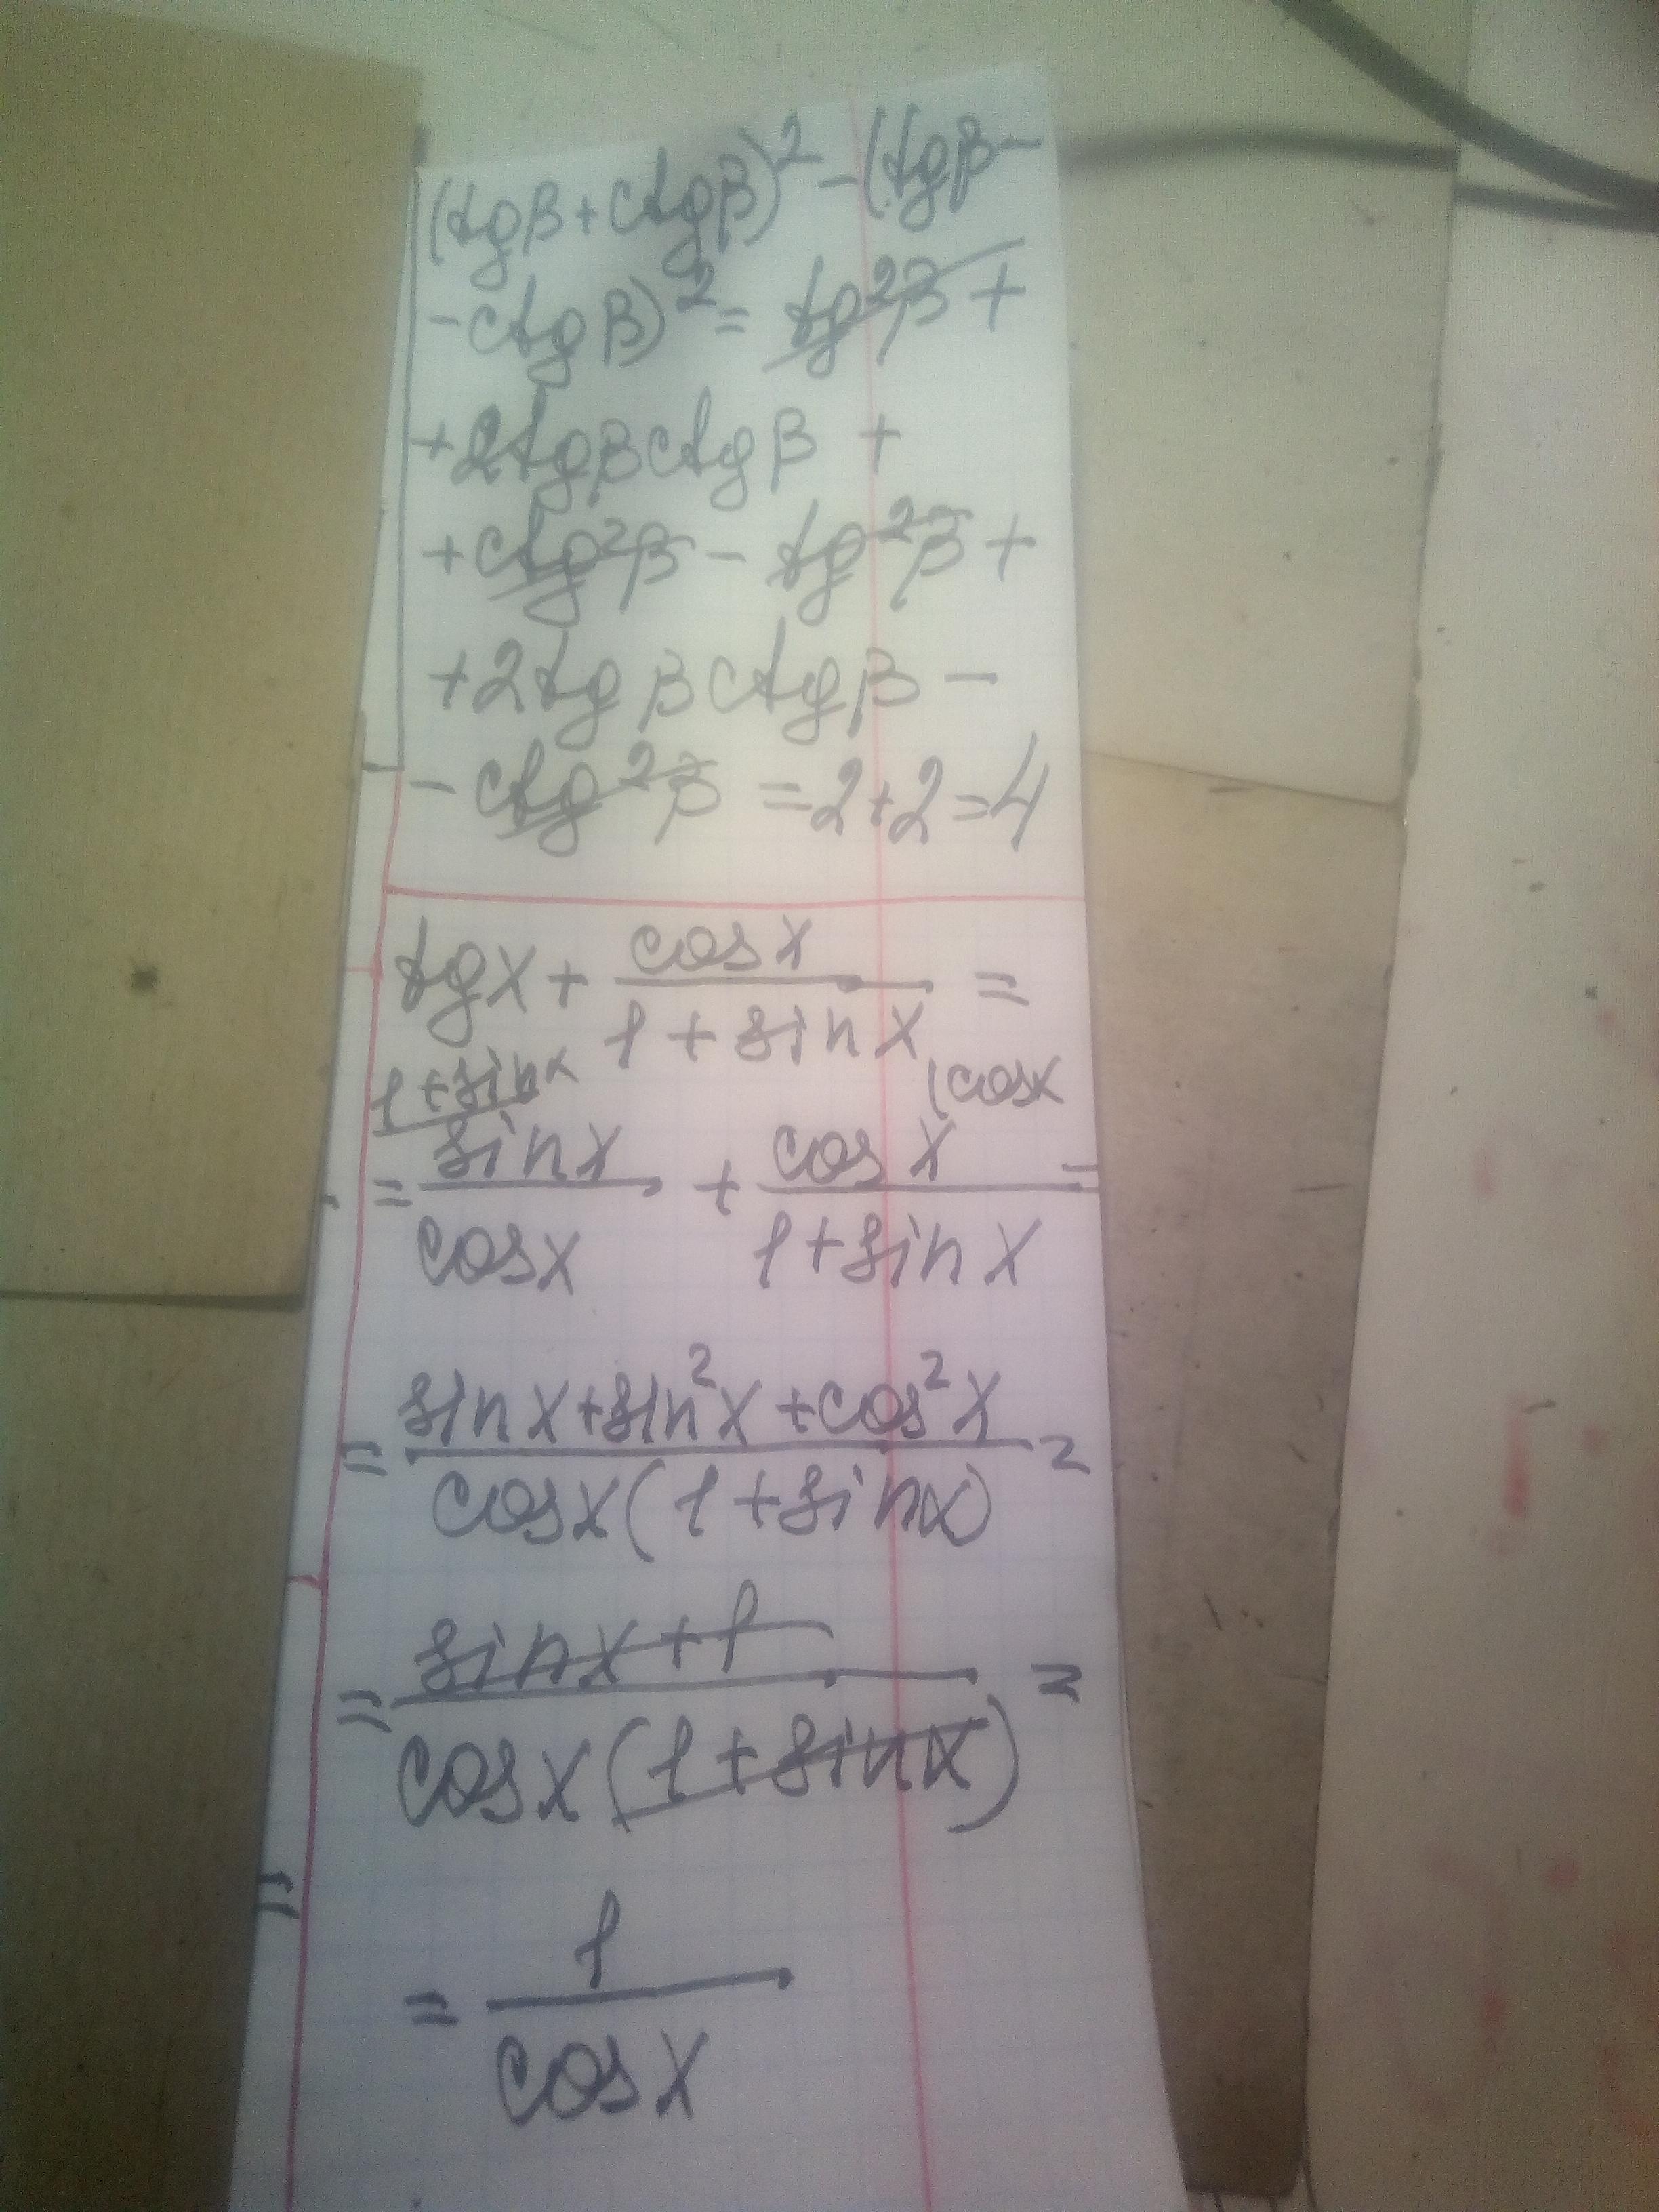 (tgβ+ctgβ)² - (tgβ-
-ctgβ)² = tg²β +
+2tgβctgβ +
+ctg²β - tg²β +
+2tgβctgβ -
-ctg²β = 2+2=4
tgx + cosx/(1+sinx) =
1+sinx (cosx
= sinx/cosx + cosx/(1+sinx) =
= (sinx+sin²x+cos²x)/(cosx(1+sinx)) =
= (sinx+1)/(cosx(1+sinx)) =
=
= 1/cosx